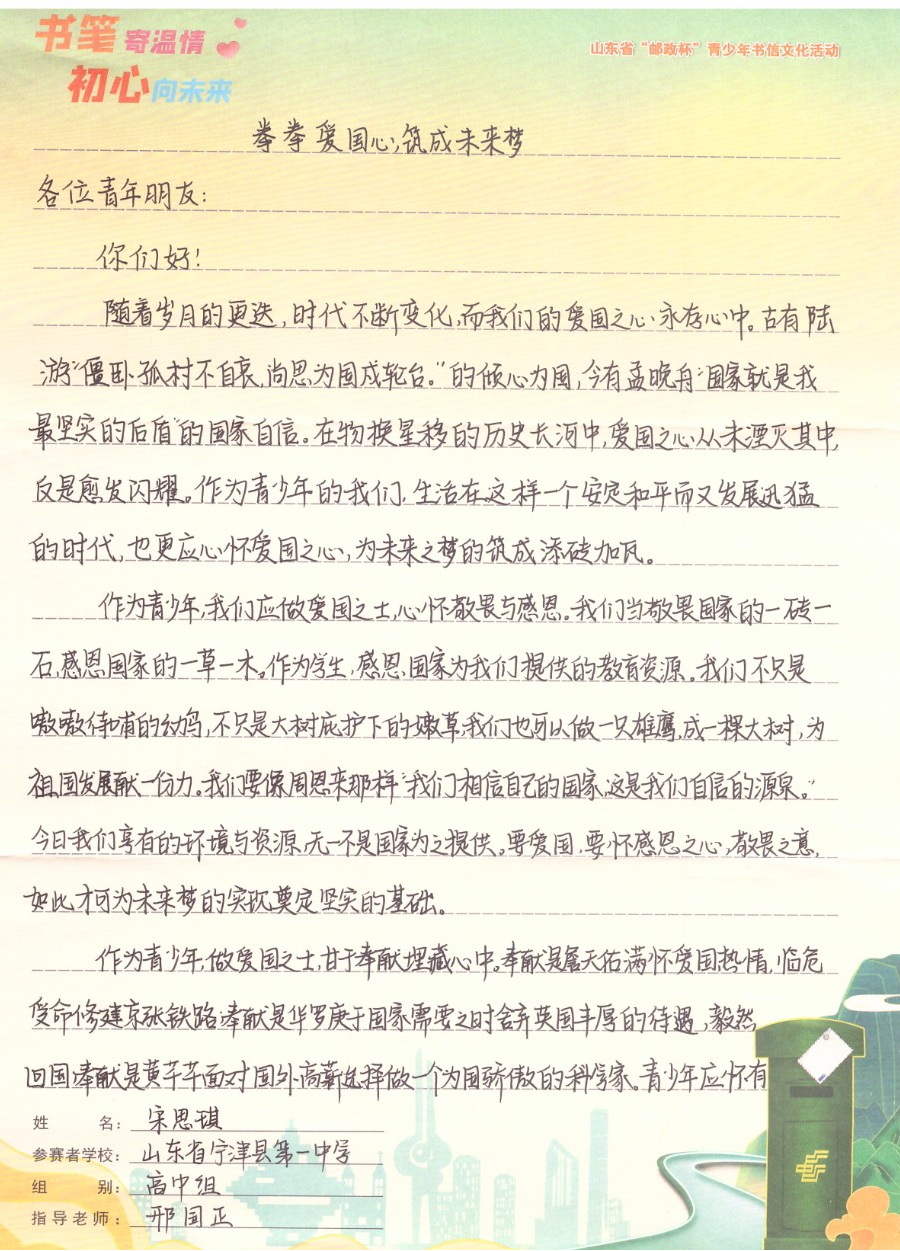 书笔寄温情
初心向未来
山东省“邮政杯”青少年书信文化活动
拳拳爱国心,筑成未来梦
各位青年朋友:
你们好!
随着岁月的更迭,时代不断变化,而我们的爱国之心永存心中。古有陆
游“僵卧孤村不自哀,尚思为国戍轮台。”的倾心为国,今有孟晚舟“国家就是我
最坚实的后盾”的国家自信。在物换星移的历史长河中,爱国之心从未湮灭其中,
反是愈发闪耀。作为青少年的我们,生活在这样一个安定和平而又发展迅猛
的时代,也更应心怀爱国之心,为未来之梦的筑成添砖加瓦。
作为青少年,我们应做爱国之士,心怀敬畏与感恩。我们当敬畏国家的一砖一
石,感恩国家的一草一木。作为学生,感恩国家为我们提供的教育资源。我们不只是
嗷嗷待哺的幼鸟,不只是大树庇护下的嫩草,我们也可以做一只雄鹰,成一棵大树,为
祖国发展献一份力。我们要像周恩来那样“我们相信自己的国家,这是我们自信的源泉。”
今日我们享有的环境与资源,无一不是国家为之提供。要爱国,要怀感恩之心,敬畏之意,
如此才可为未来梦的实现奠定坚实的基础。
作为青少年,做爱国之士,甘于奉献埋藏心中。奉献是詹天佑满怀爱国热情,临危
受命修建京张铁路;奉献是华罗庚于国家需要之时舍弃英国丰厚的待遇,毅然
回国;奉献是黄芊芊面对国外高薪选择做一个为国骄傲的科学家。青少年应怀有
姓 名: 宋思琪
参赛者学校: 山东省宁津县第一中学
组 别: 高中组
指导老师: 邢国正